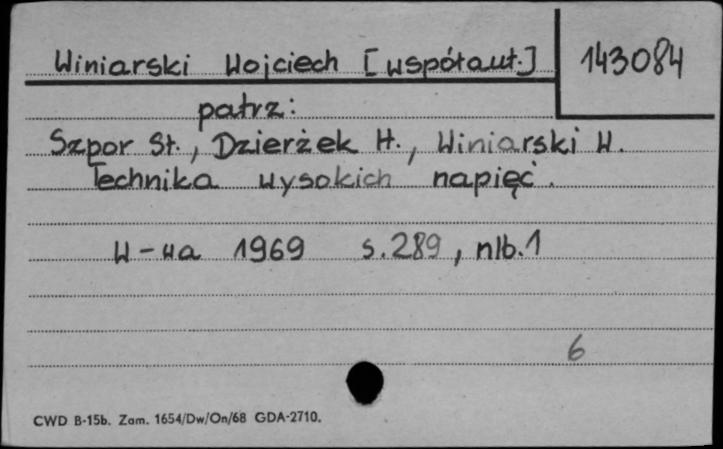 Winiarski Wojciech [współaut.]
143084
patrz:
Szpor St., Dzierżek H., Winiarski W.
Technika wysokich napięć.
W-wa 1969 s. 289, nlb. 1
6
CWD B-15b. Zam. 1654/Dw/On/68 GDA-2710.